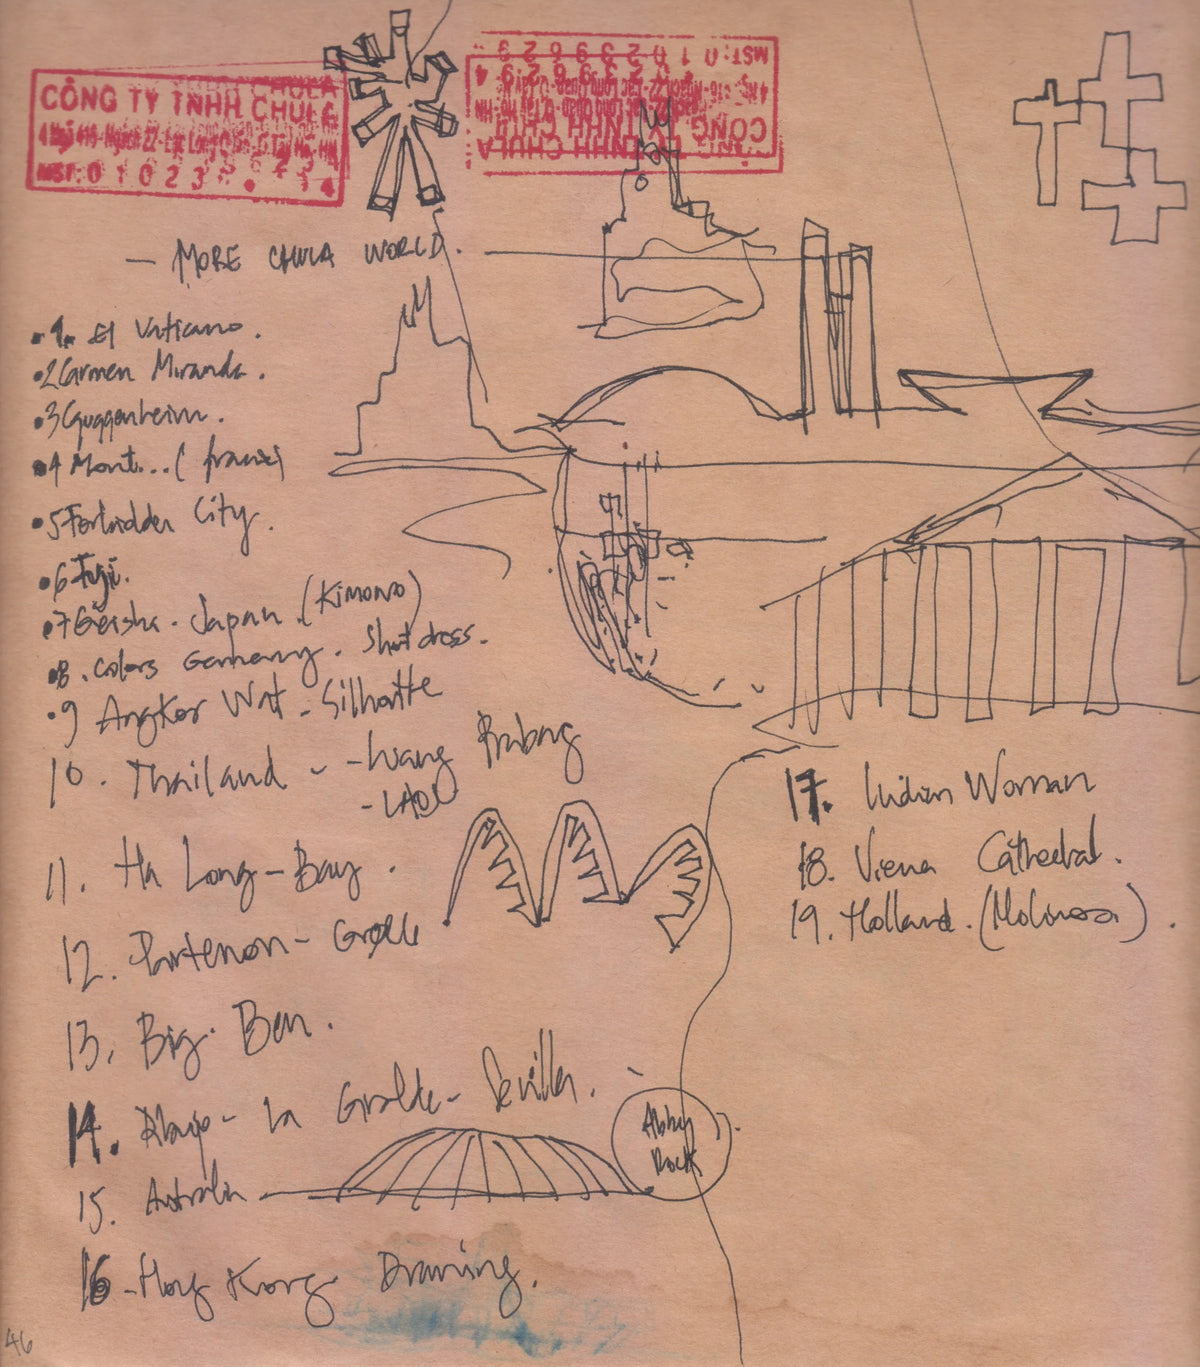 CÔNG TY TNHH CHULA
MST: 0 1 0 2 3
MST: 0 1 0 2 3 9 6 2 9
CÔNG TY TNHH CHULA
— MORE CHULA WORLD.
1. El Vaticano.
2 Carmen Miranda.
3 Guggenheim.
4 Mont... (france)
5 Forbidden City.
6 Fuji.
7 Geisha. Japan. (Kimono)
8. Colors Germany. Short dress.
9 Angkor Wat - Silhoutte
10. Thailand - - Luang Prabang
- LAOS
11. Ha Long - Bay.
12. Partenon - Greece
13. Big Ben.
14. - La Giralda - Sevilla.
15. Australia
Abby
Rock
16 - Hong Kong Drawing.
17. Indian Woman
18. Viena Cathedral.
19. Holland. (Molinos).
46